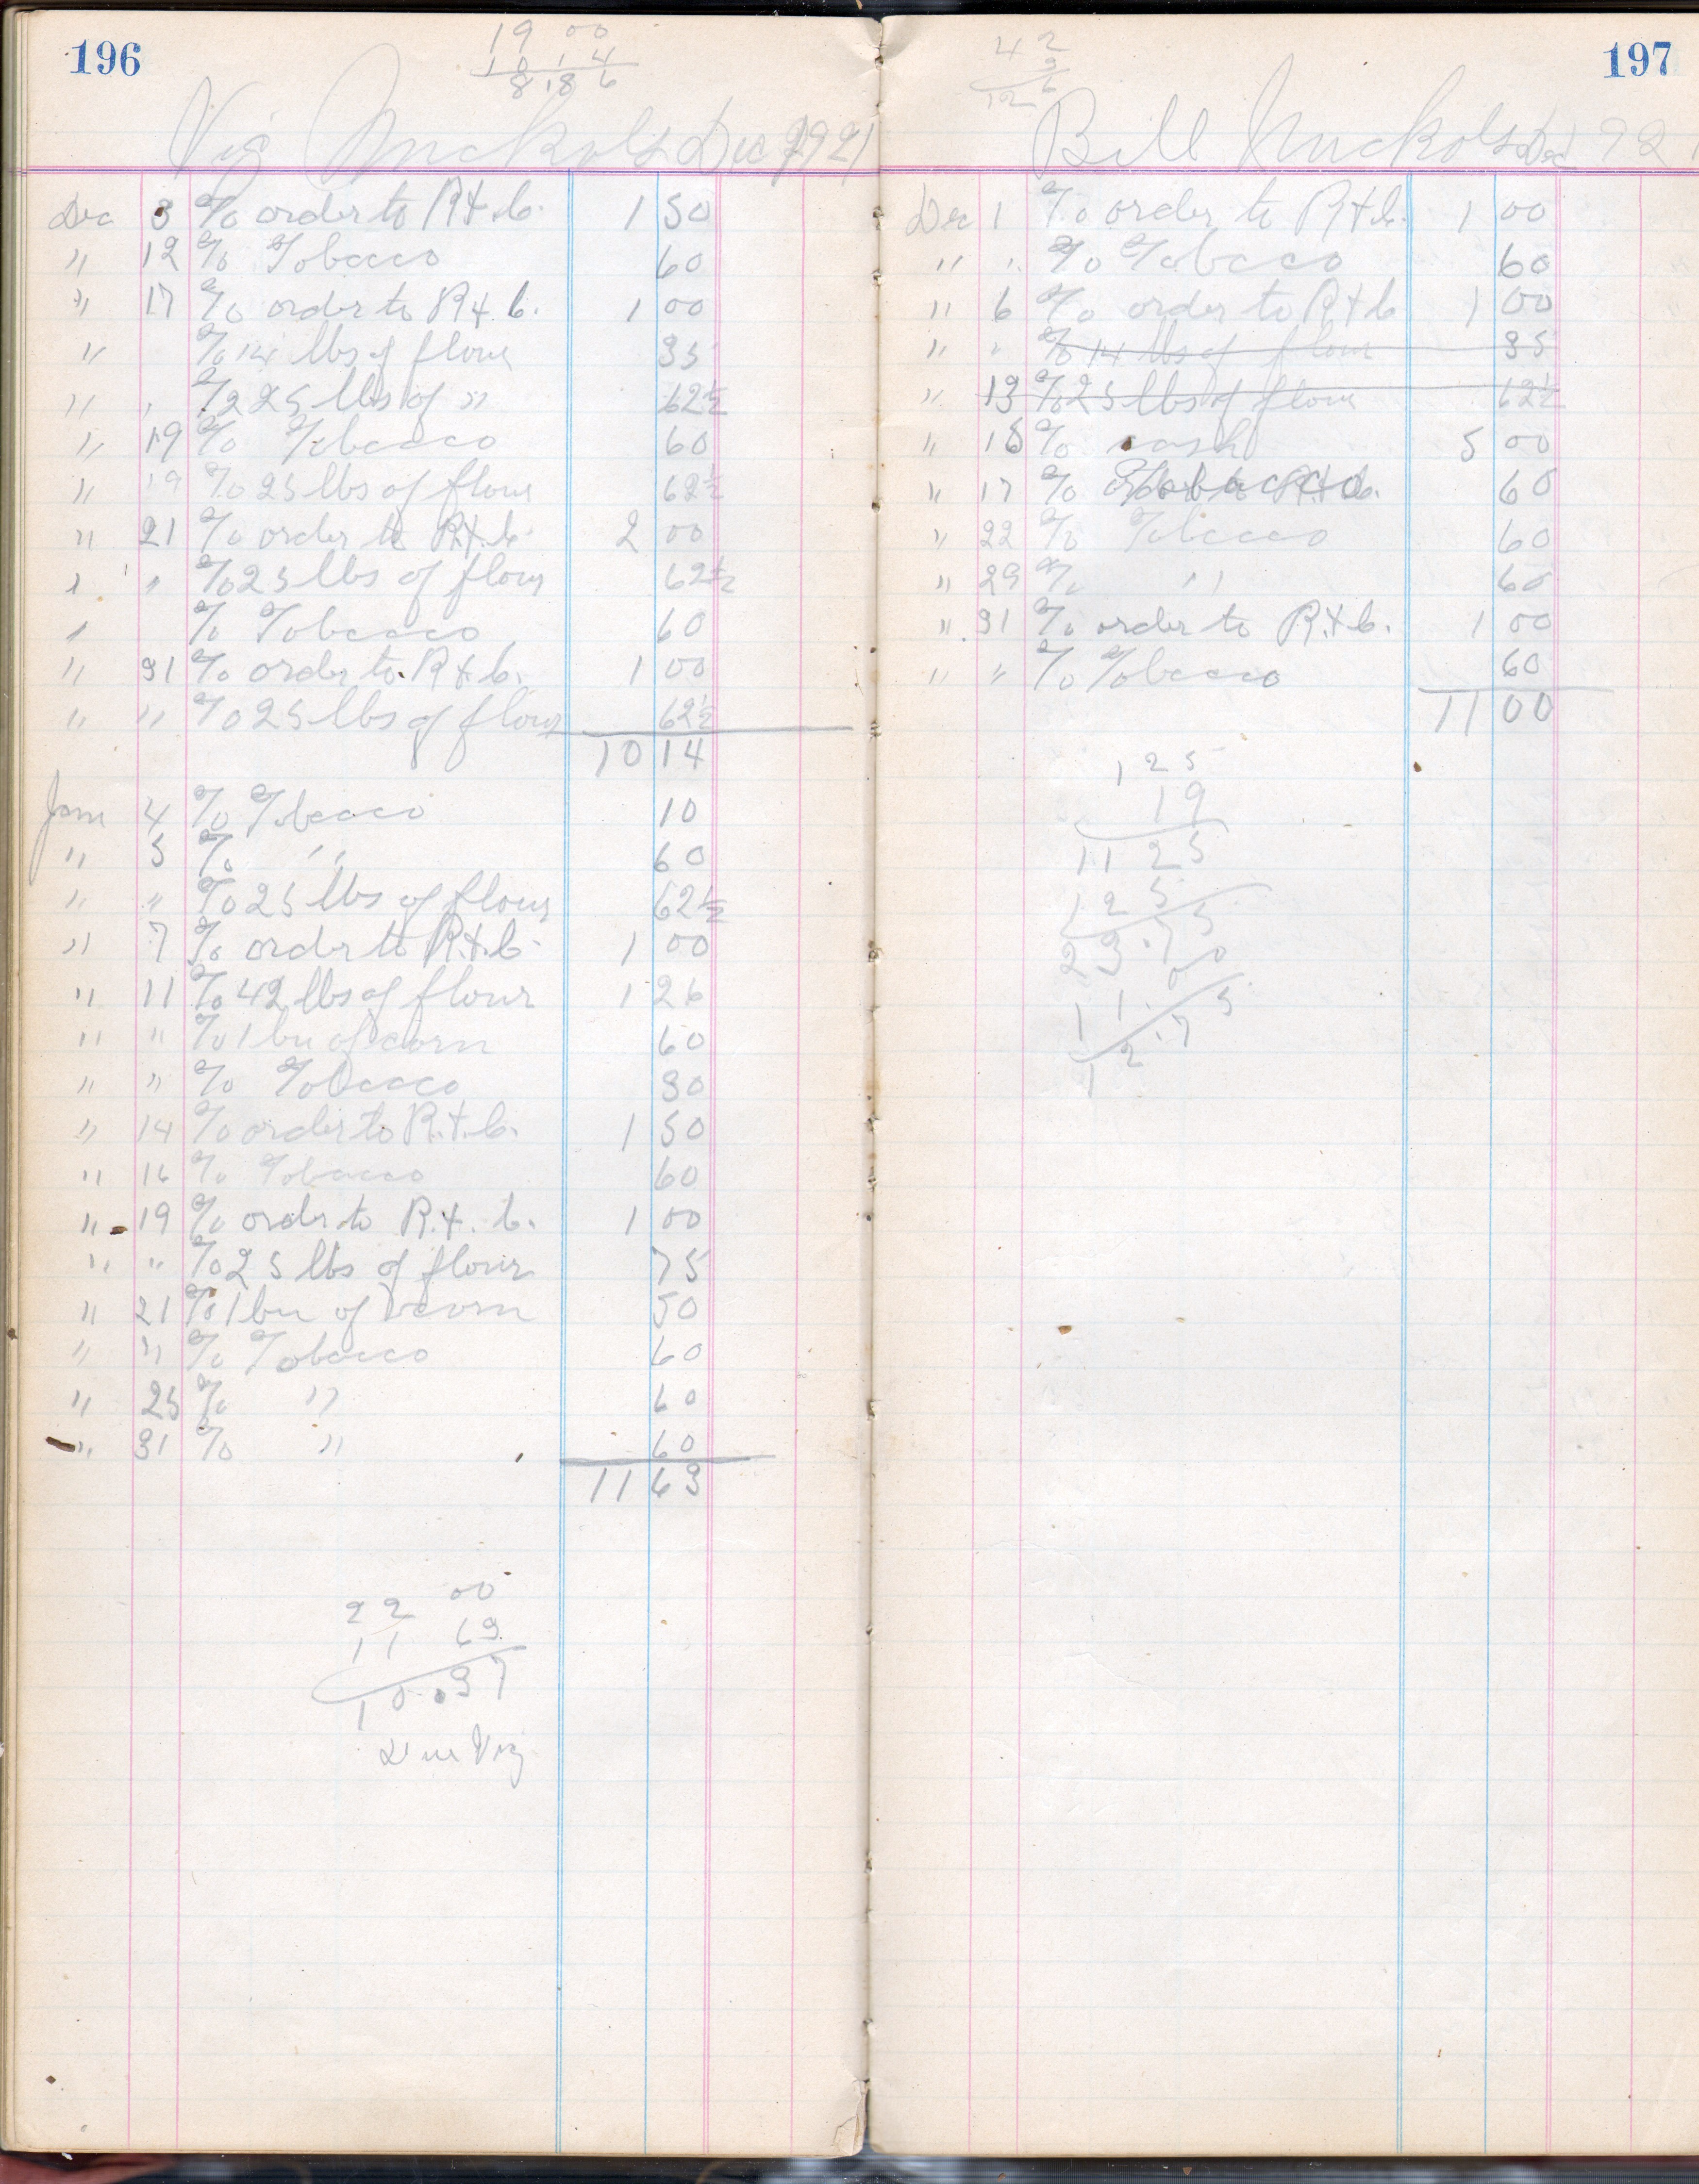 196
19 00
10 14
8 86
Vig Nuckols Dec 1921
Dec 3 % order to R.+b. 1 50
" 12 % Tobacco 60
" 17 % order to R+.b. 1 00
" % 14 lbs of flour 35
" " % 25 lbs of " 62½
" 19 % Tobacco 60
" 19 % 25 lbs of flour 62½
" 21 % order to R+.b. 2 00
" " % 25 lbs of flour 62½
" % Tobacco 60
" 31 % order to R+b. 1 00
" " % 25 lbs of flour 62½
10 14
Jan 4 % Tobacco 10
" 5 % " 60
" " % 25 lbs of flour 62½
" 7 % order to R.+.b. 1 00
" 11 % 42 lbs of flour 1 26
" " % 1 bu of corn 60
" " % Tobacco 30
" 14 % order to R.+.b. 1 50
" 16 % Tobacco 60
" 19 % order to R.+.b. 1 00
" " % 25 lbs of flour 75
" 21 % 1 bu of corn 50
" " % Tobacco 60
" 25 % " 60
" 31 % " 60
11 63
22 00
11 63
10.37
Due Vig
197
42
3
126
Bill Nuckols Dec 192
Dec 1 % order to R+b. 1 00
" " % Tobacco 60
" 6 % order to R+b 1 00
" " % 14 lbs of flour 35
" 13 % 25 lbs of flour 62½
" 15 % cash 5 00
" 17 % Tobacco 60
" 22 % Tobacco 60
" 29 % " 60
" 31 % order to R.+b. 1 00
" " % Tobacco 60
11 00
125
19
1125
125
23.75
11.00
12.75